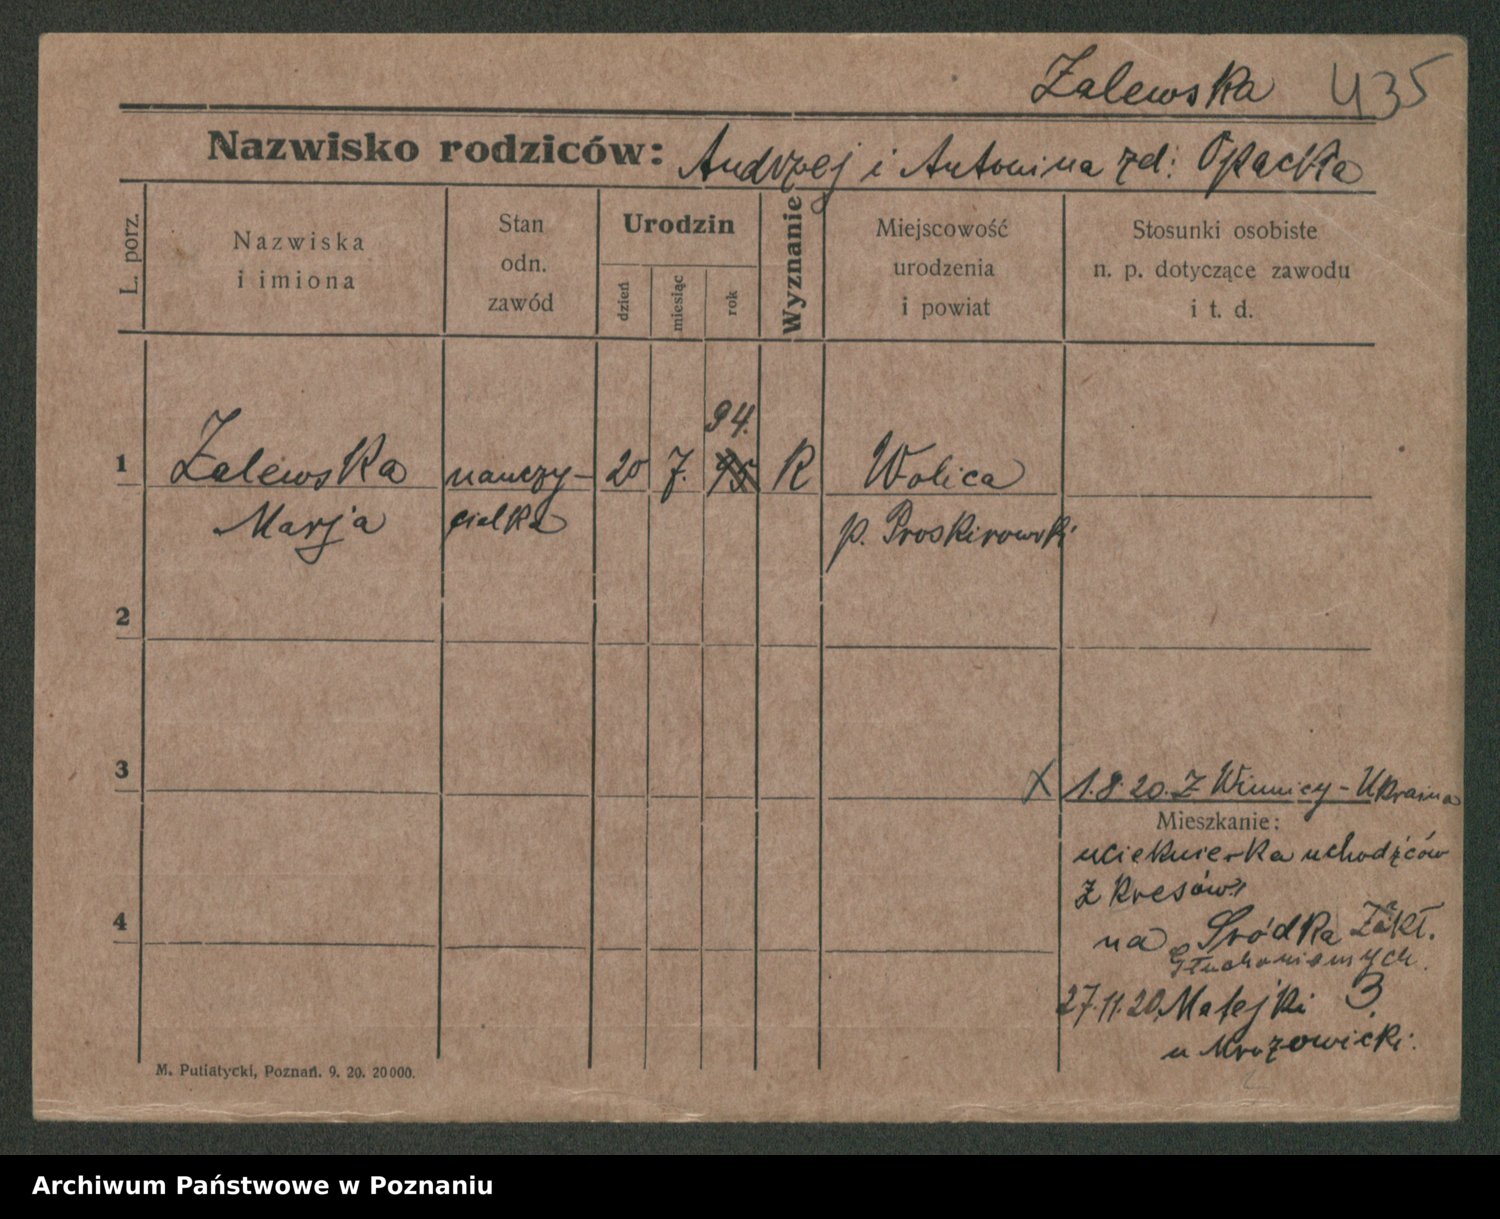 Zalewska 435
Nazwisko rodziców: Andrzej i Antonina zd: Opacka
L. porz.
Nazwiska
i imiona
Stan
odn.
zawód
Urodzin
dzień
miesiąc
rok
Wyznanie
Miejscowość
urodzenia
i powiat
Stosunki osobiste
n. p. dotyczące zawodu
i t. d.
94.
1 Zalewska nauczy- 20 7. 95 R Wolica
Marja cielka p. Proskirowski
2
3
X 1.8.20. Z Winnicy - Ukraina
Mieszkanie:
uciekinierka uchodźców
z kresów
4
na Śródka Zakł.
Głuchoniemych.
27.11.20 Matejki 3.
u Mrozowicki.
M. Putiatycki, Poznań. 9. 20. 20000.
Archiwum Państwowe w Poznaniu